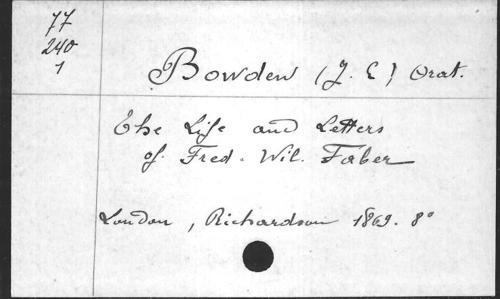 77
240
1
Bowden (J. E) Orat.
The Life and Letters
of. Fred. Wil. Faber
London, Richardson 1869. 8°